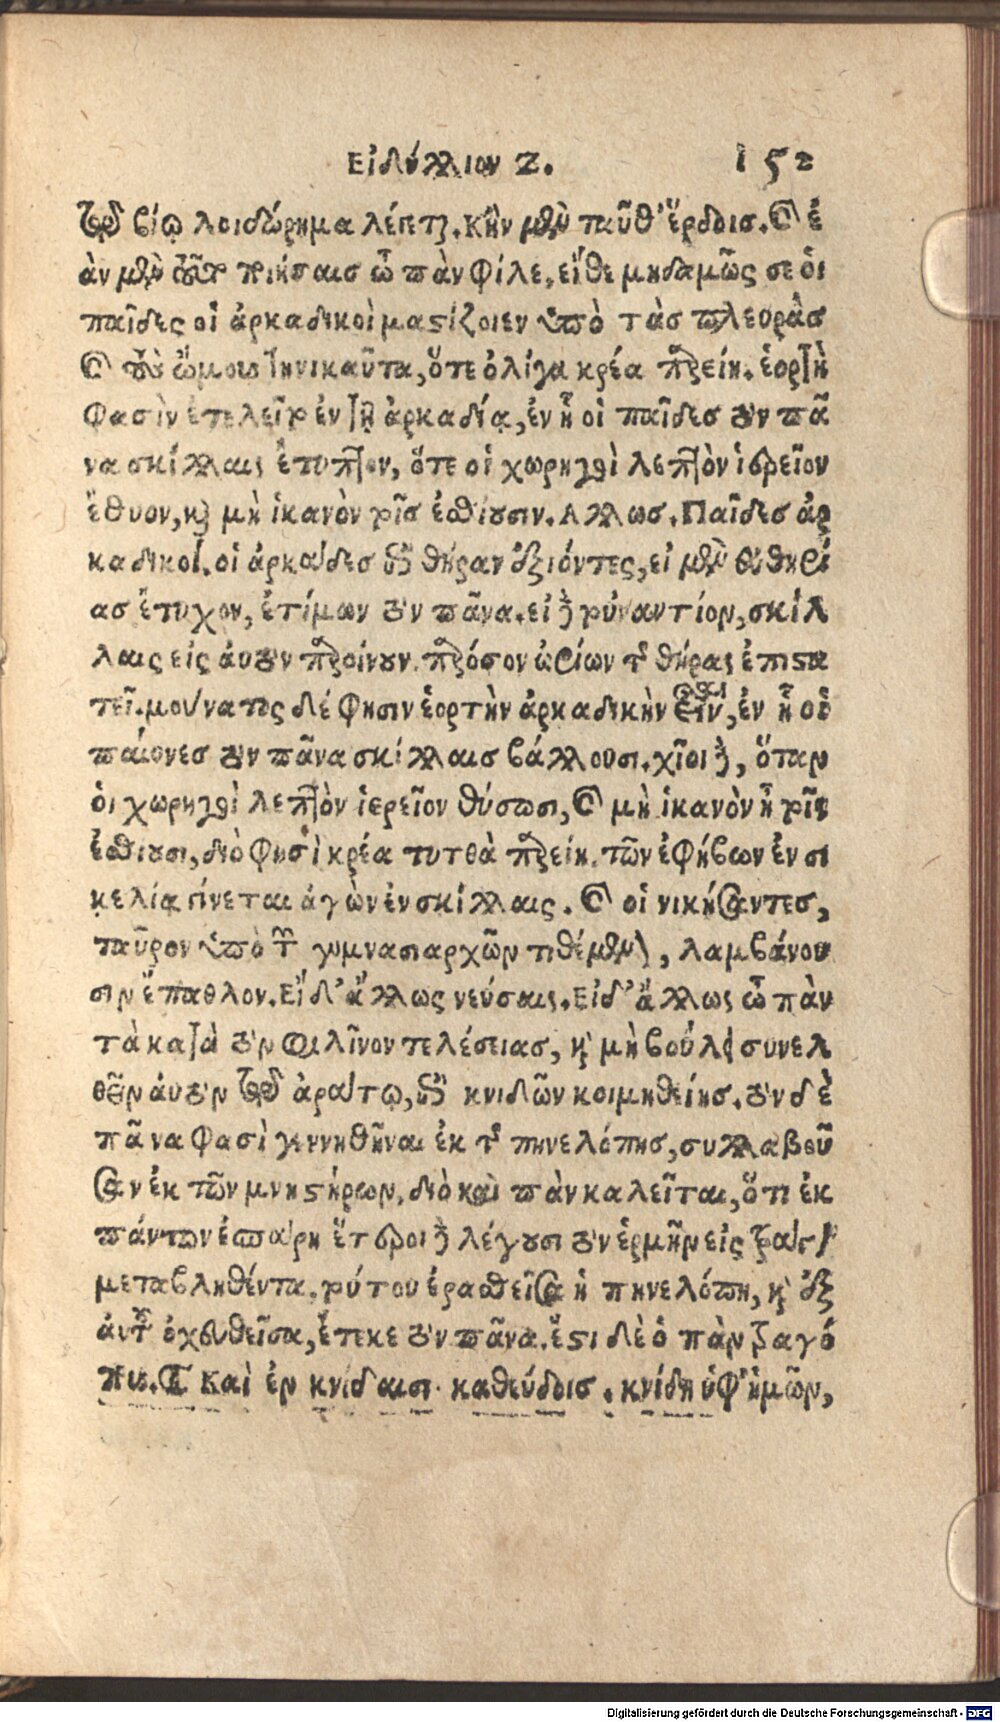 Εἰδύλλιον Ζ. 152
τῷ βίῳ λοιδόρημα λέγεται. Κἢν μὲν ταῦθ' ἕρδοις. καὶ ἐ
ὰν μὲν οὕτω ποιήσαις ὦ πὰν φίλε, εἴθε μηδαμῶς σε οἱ
παῖδες οἱ ἀρκαδικοὶ μαστίζοιεν ὑπὸ τὰς πλευρὰς
καὶ τοὺς ὤμους τηνικαῦτα, ὅτε ὀλίγα κρέα παρείη. ἑορτὴ
φασὶν ἐτελεῖτο ἐν τῇ ἀρκαδίᾳ, ἐν ᾗ οἱ παῖδες τὸν πᾶ
να σκίλλαις ἔτυπτον, ὅτε οἱ χωρηγοὶ λεπτὸν ἱερεῖον
ἔθυον, καὶ μὴ ἱκανὸν τοῖς ἐσθίουσιν. Αλλως. Παῖδες ἀρ
καδικοί. οἱ ἀρκάδες ἐπὶ θήραν ἐξιόντες, εἰ μὲν εὐθηρί
ας ἔτυχον, ἐτίμων τὸν πᾶνα. εἰ δὲ τοὐναντίον, σκίλ
λαις εἰς αὐτὸν παροίνουν. παρόσον ὠρίων τῆς θήρας ἐπιστα
τεῖ. μούνατος δέ φησιν ἑορτὴν ἀρκαδικὴν εἶναι, ἐν ᾗ οἱ
παίονες τὸν πᾶνα σκίλλαις βάλλουσι. χῖοι δὲ, ὅταν
οἱ χωρηγοὶ λεπτὸν ἱερεῖον θύσωσι, καὶ μὴ ἱκανὸν ᾖ τοῖς
ἐσθίουσι, διό φησὶ κρέα τυτθὰ παρείη. τῶν ἐφήβων ἐν σι
κελίᾳ γίνεται ἀγὼν ἐν σκίλλαις. καὶ οἱ νικήσαντες,
ταῦρον ὑπὸ τῶν γυμνασιαρχῶν τιθέμενον, λαμβάνου
σιν ἔπαθλον. Εἰ δ' ἄλλως νεύσαις. Εἰ δ' ἄλλως ὦ πὰν
τὰ κατὰ τὸν φιλῖνον τελέσειας, καὶ μὴ βούλει συνελ
θεῖν αὐτὸν τῷ ἀράτῳ, ἐπὶ κνιδῶν κοιμηθείης. τὸν δὲ
πᾶνα φασὶ γεννηθῆναι ἐκ τῆς πηνελόπης, συλλαβού
σαν ἐκ τῶν μνηστήρων. διὸ καὶ πὰν καλεῖται, ὅτι ἐκ
πάντων ἐσπάρη ἕτεροι δὲ λέγουσι τὸν ἑρμῆν εἰς τράγον
μεταβληθέντα. τούτου ἐρασθεῖσα ἡ πηνελόπη, καὶ ἐξ
αὐτοῦ ὀχευθεῖσα, ἔτεκε τὸν πᾶνα. ἔστι δὲ ὁ πὰν τραγό
πους. Καὶ ἐν κνίδαισι καθεύδοις. κνίδη ὑφ' ἡμῶν,
Digitalisierung gefördert durch die Deutsche Forschungsgemeinschaft - DFG